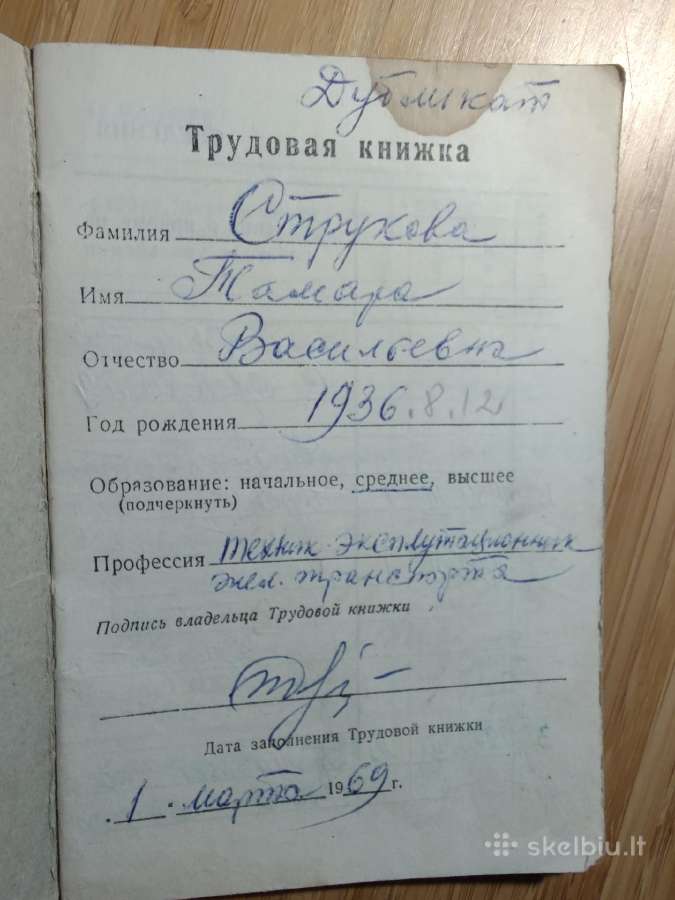 Дубликат
Трудовая книжка
Фамилия Струкова
Имя Тамара
Отчество Васильевна
Год рождения 1936.8.12
Образование: начальное, среднее, высшее
(подчеркнуть)
Профессия техник-эксплутационник
жел. транспорта
Подпись владельца Трудовой книжки
Дата заполнения Трудовой книжки
1 марта 1969 г.
skelbiu.lt